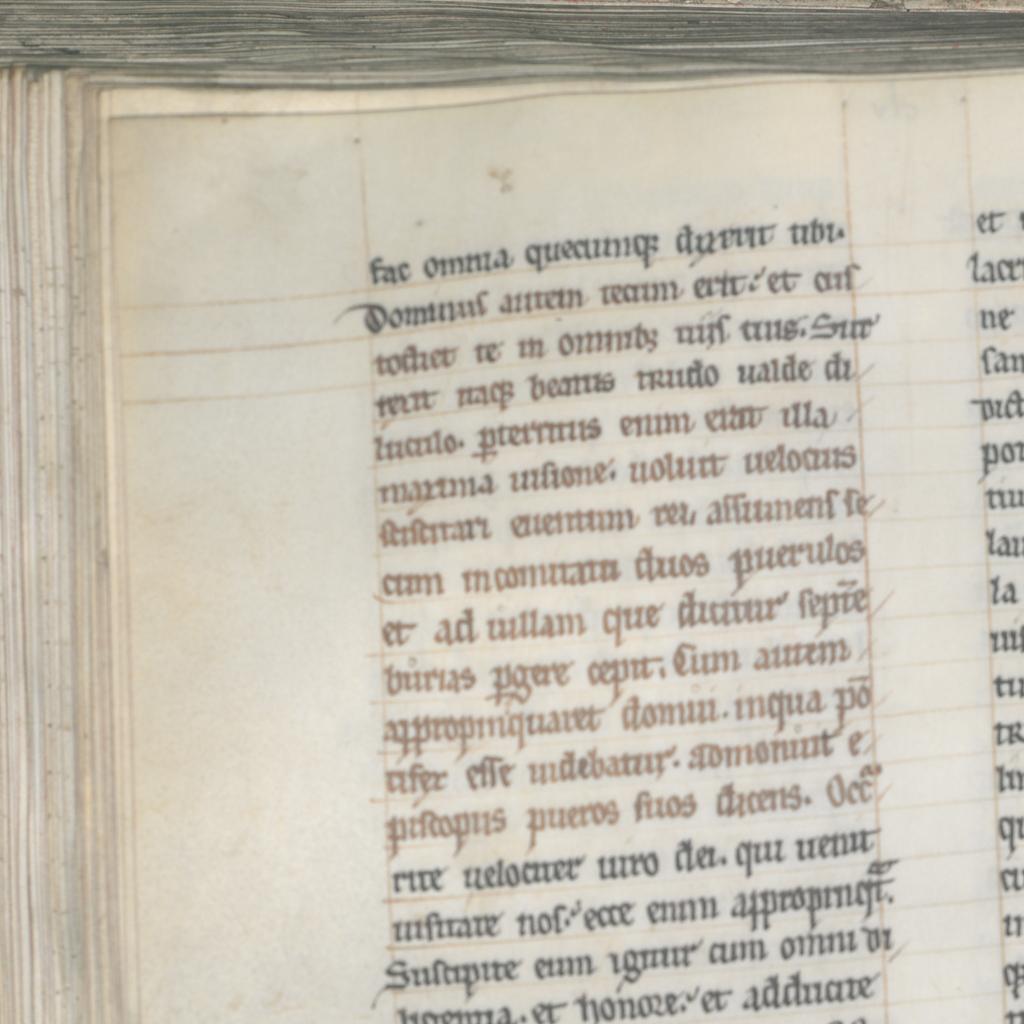 fac omnia quecumq; dixerit tibi.
Dominus autem tecum erit: et cus
todiet te in omnib; uiis tuis. Sur
rexit naq; beatus trudo ualde di
luculo. pterritus enim erat illa
maxima uisione. uoluit uelocius
scistitari euentum rei, assumens se
cum in comitatu duos puerulos
et ad uillam que dicitur septē
burias pgere cepit. Cum autem
appropinquaret domui. in qua pō
tifex esse uidebatur. admonuit e
piscopus pueros suos dicens. Occ
rite uelociter uiro dei. qui uenit
uisitare nos: ecce enim appropinqt.
Suscipite eum igitur cum omni di
ligentia. et honore: et adducite
et
lacr
ne
san
dict
por
la